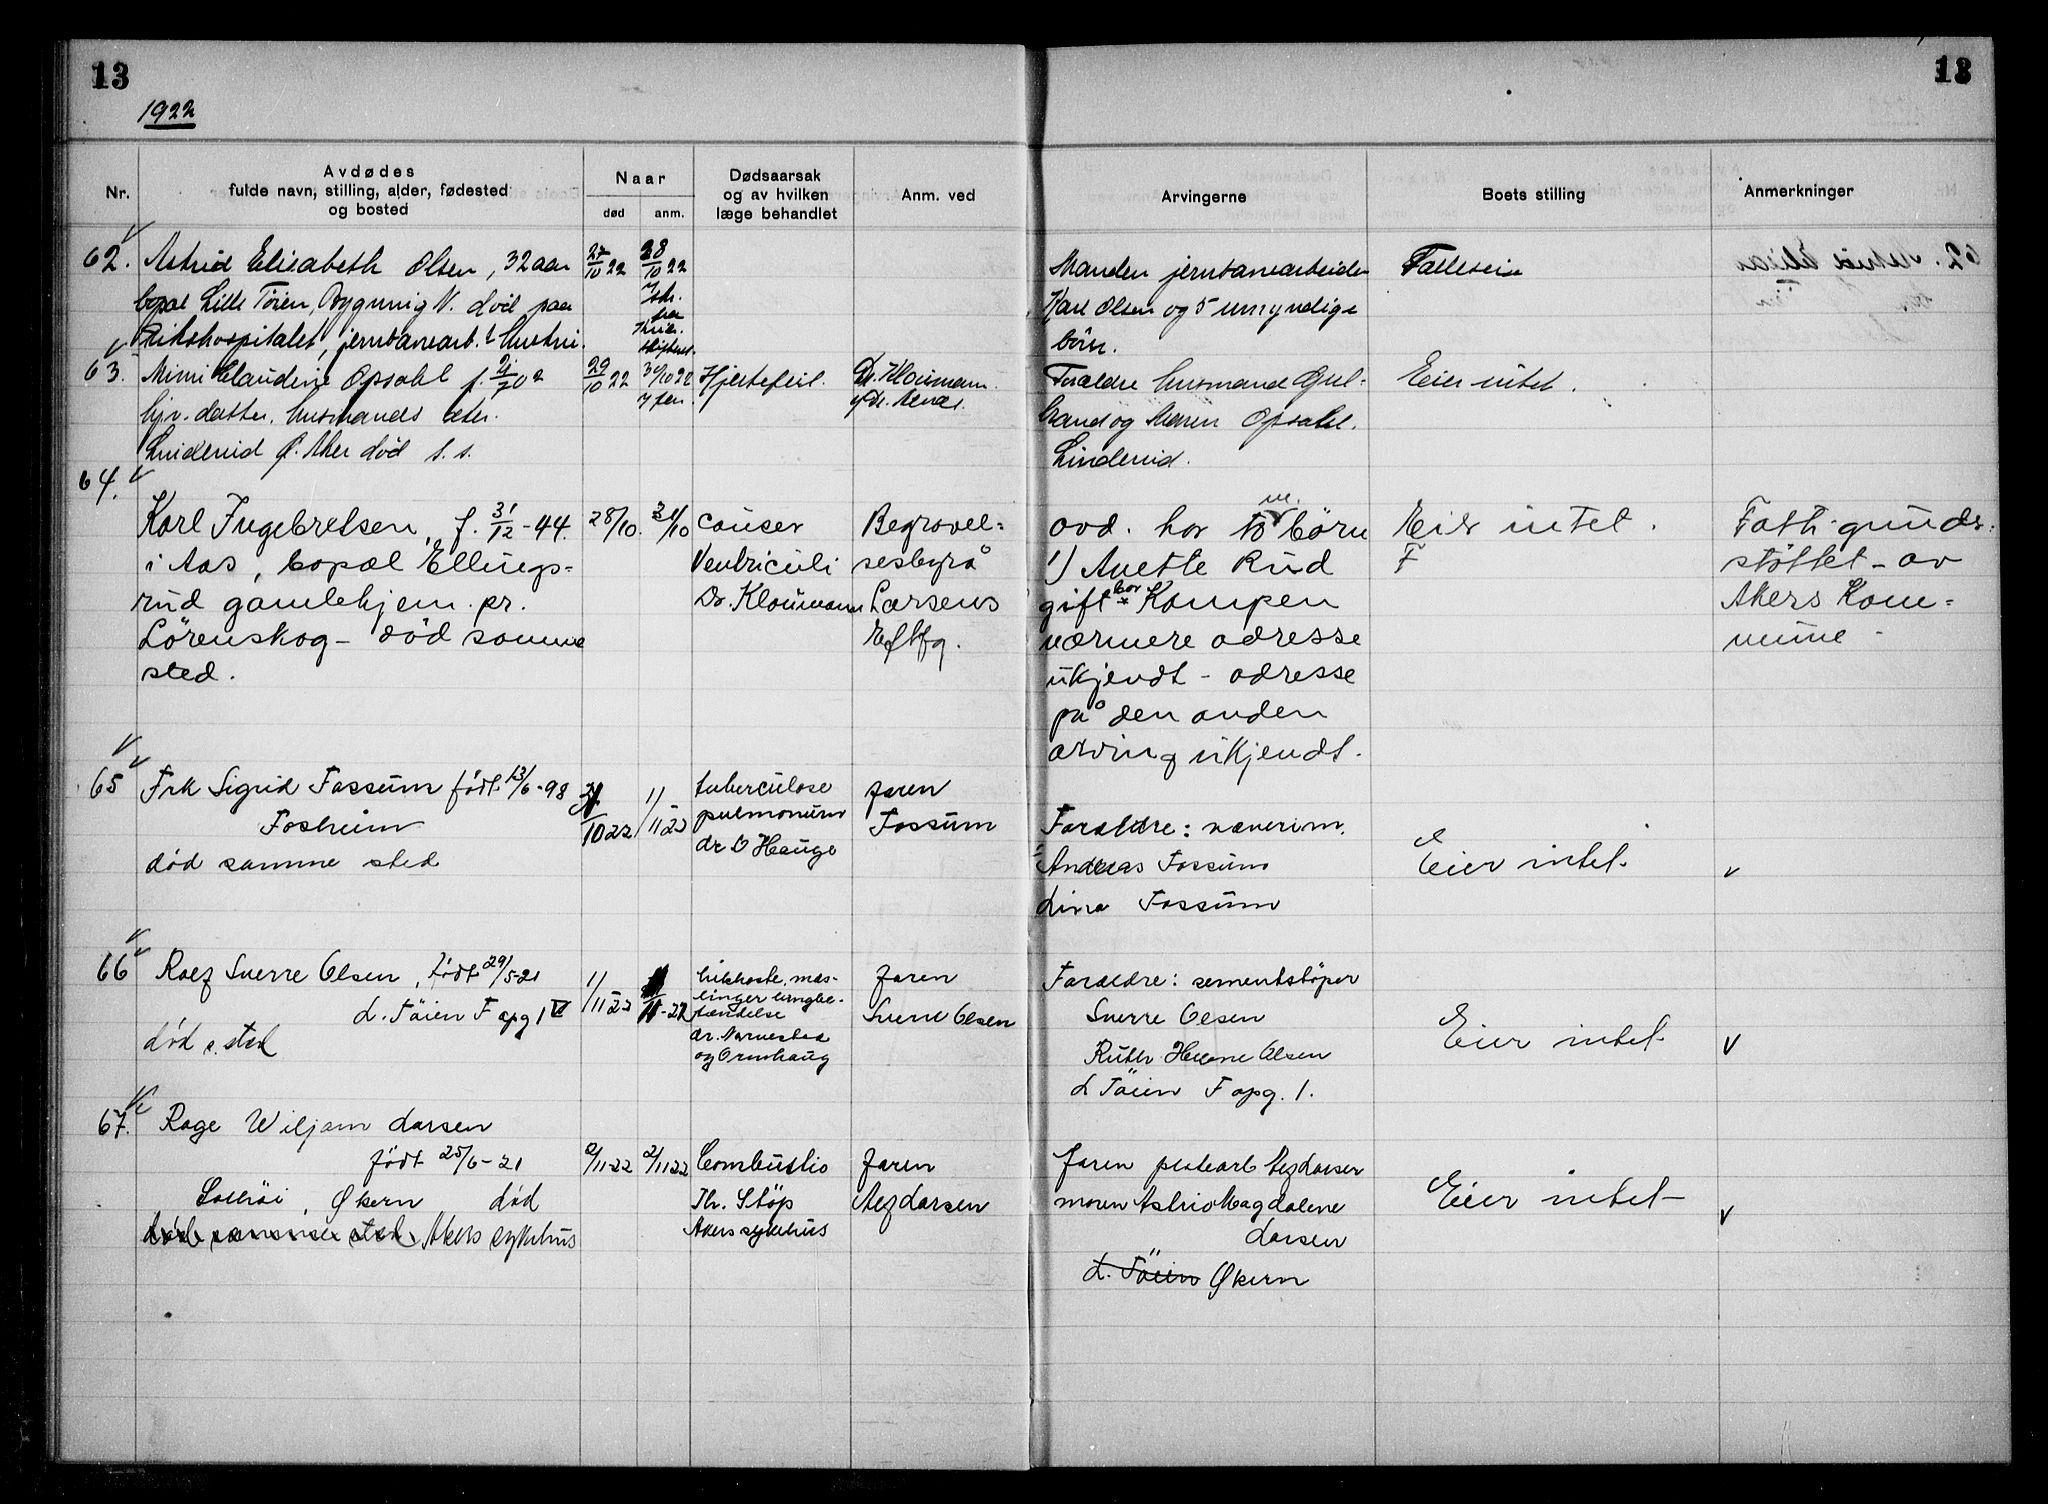 13
13
1922
Nr.
Avdødes
fulde navn, stilling, alder, fødested
og bosted
Naar
død
anm.
Dødsaarsak
og av hvilken
læge behandlet
Anm. ved
Arvingerne
Boets stilling
Anmerkninger
62. Astrid Elisabeth Olsen, 32 aar
bopæl Lille Tøien, Bygning V. død paa
Rikshospitalet, jernbanearb.s hustru.
27/10 22
28/10 22
fra
Manden jernbanearbeider
Karl Olsen og 5 umyndige
børn.
Fælleseie
63. Mimi Claudine Opsahl f.
hjv. datter. husmands dtr.
Linderud Ø. Aker død s. s.
29/10 22
30/10 22
Hjertefeil.
Dr. Kloumann
Forældre husmand Gul-
brand og Maren Opsahl.
Linderud.
Eier intet.
64.
Karl Ingebretsen, f. 31/12-44.
i Aas, bopæl Ellings-
rud gamlehjem. pr.
Lørenskog - død samme
sted.
28/10.
31/10
cancer
Ventriculi
Dr. Kloumann
Begravel-
sesbyrå
Larsens
Eftfg.
avd. har to børn
1) Anette Rud
gift bor Kampen
nærmere adresse
ukjendt - adresse
på den anden
arving ukjendt.
Eier intet.
F
Fattig-under-
støttet - av
Akers Kom-
mune -
65 Frk Sigrid Fossum født 13/6-98
Fosheim
død samme sted
31/10 22
1/11 22
tuberculose
pulmonum
dr O Hauge
faren
Fossum
Forældre: snekkerim.
Andreas Fossum
Lina Fossum
Eier intet.
v
66 Rolf Sverre Olsen, født 29/5-21
L. Tøien F opg 1 V
død s. sted
1/11 22
1/11-22
kikhoste, mes-
linger lungebe-
tændelse
dr. Narvestad
og Ormhaug
faren
Sverre Olsen
Forældre: sementstøper
Sverre Olsen
Ruth Helene Olsen
L Tøien F opg. 1.
Eier intet.
v
67. Rage Wiljam Larsen
født 25/6-21
Solhøi, Økern død
død samme sted. Akers sykehus
2/11-22
2/11 22
Combustio
Th. Støp
Akers sykehus
faren
Alf Larsen
faren platearb Alf Larsen
moren Astrid Magdalene
Larsen
L. Tøien Økern
Eier intet -
v